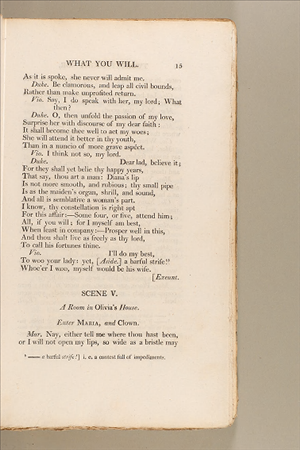 WHAT YOU WILL. 15
As it is spoke, she never will admit me.
Duke. Be clamorous, and leap all civil bounds,
Rather than make unprofited return.
Vio. Say, I do speak with her, my lord; What
then?
Duke. O, then unfold the passion of my love,
Surprise her with discourse of my dear faith:
It shall become thee well to act my woes;
She will attend it better in thy youth,
Than in a nuncio of more grave aspéct.
Vio. I think not so, my lord.
Duke. Dear lad, believe it;
For they shall yet belie thy happy years,
That say, thou art a man: Diana's lip
Is not more smooth, and rubious; thy small pipe
Is as the maiden's organ, shrill, and sound,
And all is semblative a woman's part.
I know, thy constellation is right apt
For this affair:—Some four, or five, attend him;
All, if you will; for I myself am best,
When least in company:—Prosper well in this,
And thou shalt live as freely as thy lord,
To call his fortunes thine.
Vio. I'll do my best,
To woo your lady: yet, [Aside.] a barful strife!⁹
Whoe'er I woo, myself would be his wife.
[Exeunt.
SCENE V.
A Room in Olivia's House.
Enter MARIA, and Clown.
Mar. Nay, either tell me where thou hast been,
or I will not open my lips, so wide as a bristle may
⁹ —— a barful strife!] i. e. a contest full of impediments.